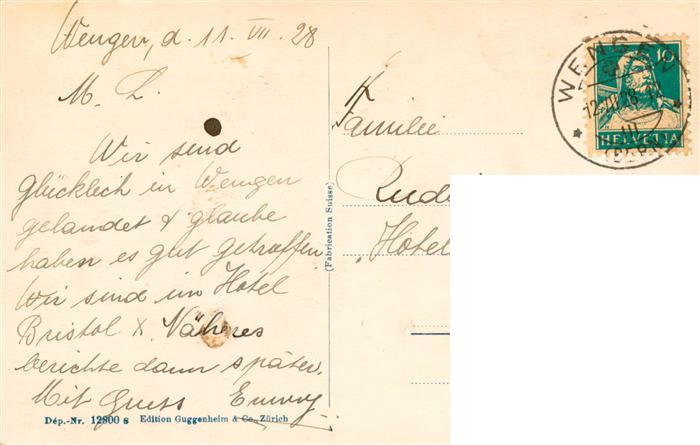 Wengen, d. 11. VII. 28
M. L.
Wir sind
glücklich in Wengen
gelandet & glaube
haben es gut getroffen
Wir sind im Hotel
Bristol & Näheres
berichte dann später.
Mit Gruss Emmy
Dép.-Nr. 12800 s Edition Guggenheim & Co., Zürich
(Fabrication Suisse)
Familie
Hotel
WENGEN
12.VII.28
(BERN)
10
HELVETIA